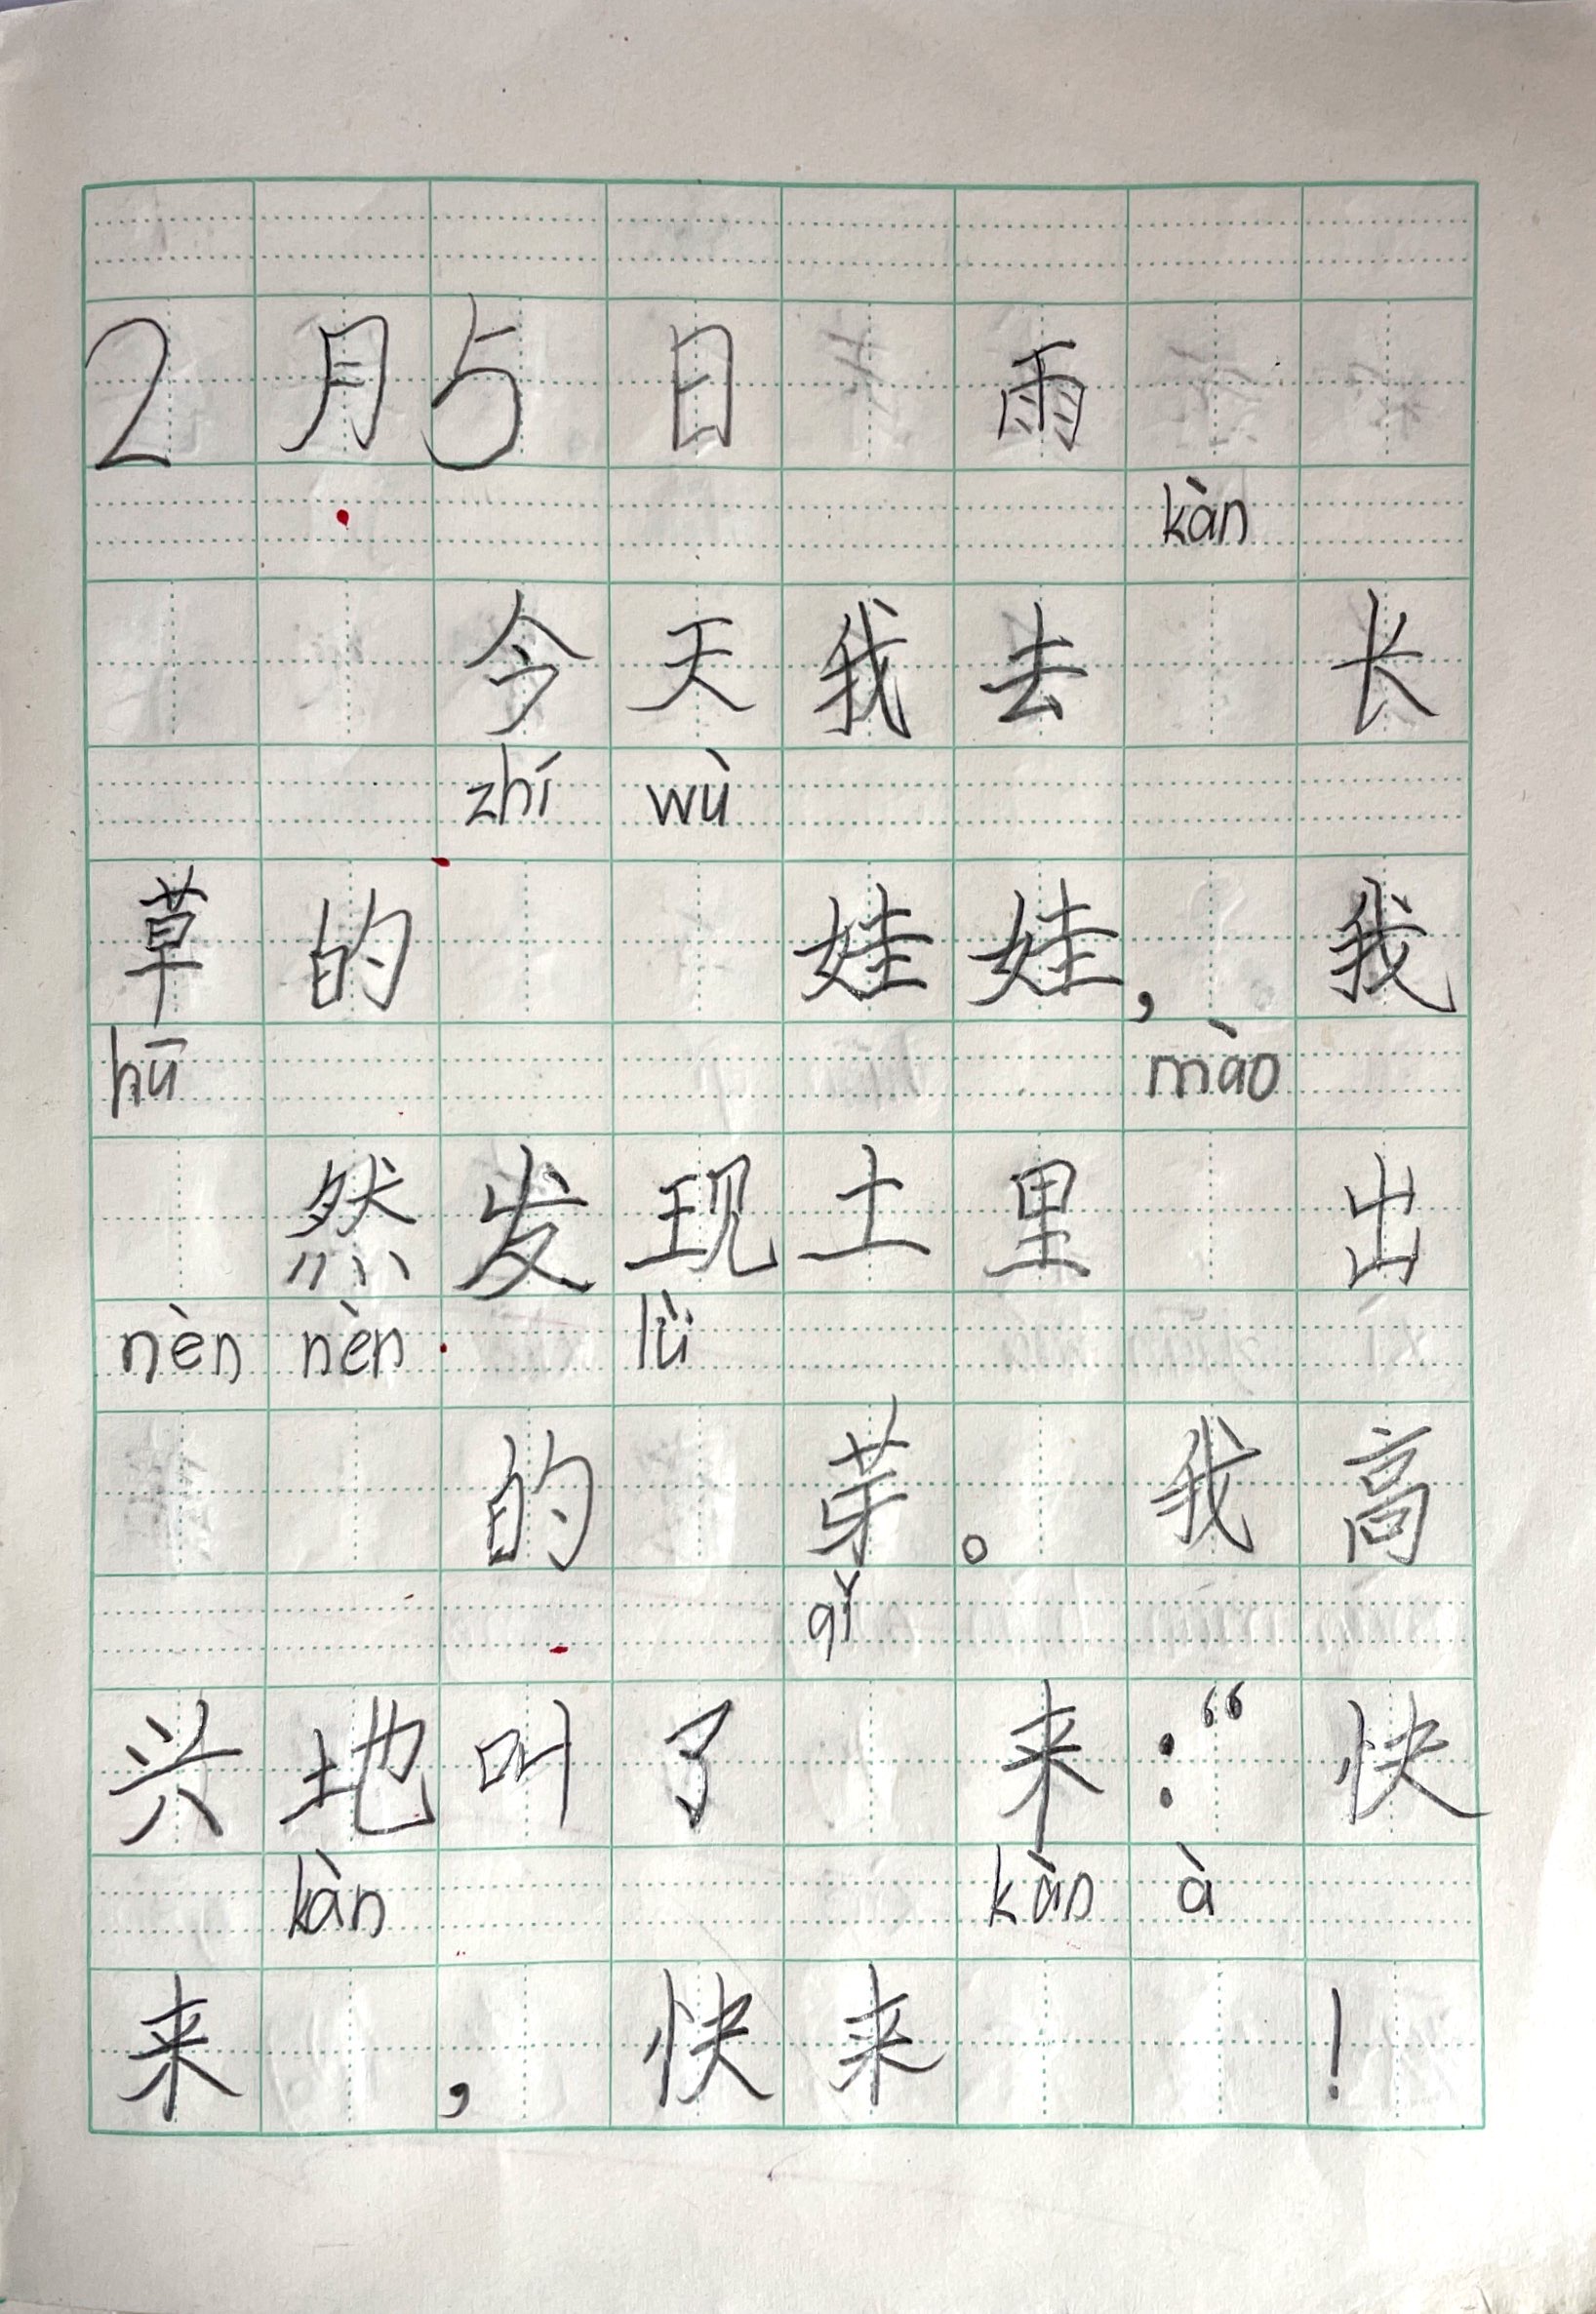 2月5日 雨
kàn
今天我去 长
zhí wù
草的 娃娃，我
hū mào
然发现土里 出
nèn nèn lǜ
的 芽。我高
qǐ
兴地叫了 来：“快
kàn kàn à
来 ，快来 ！